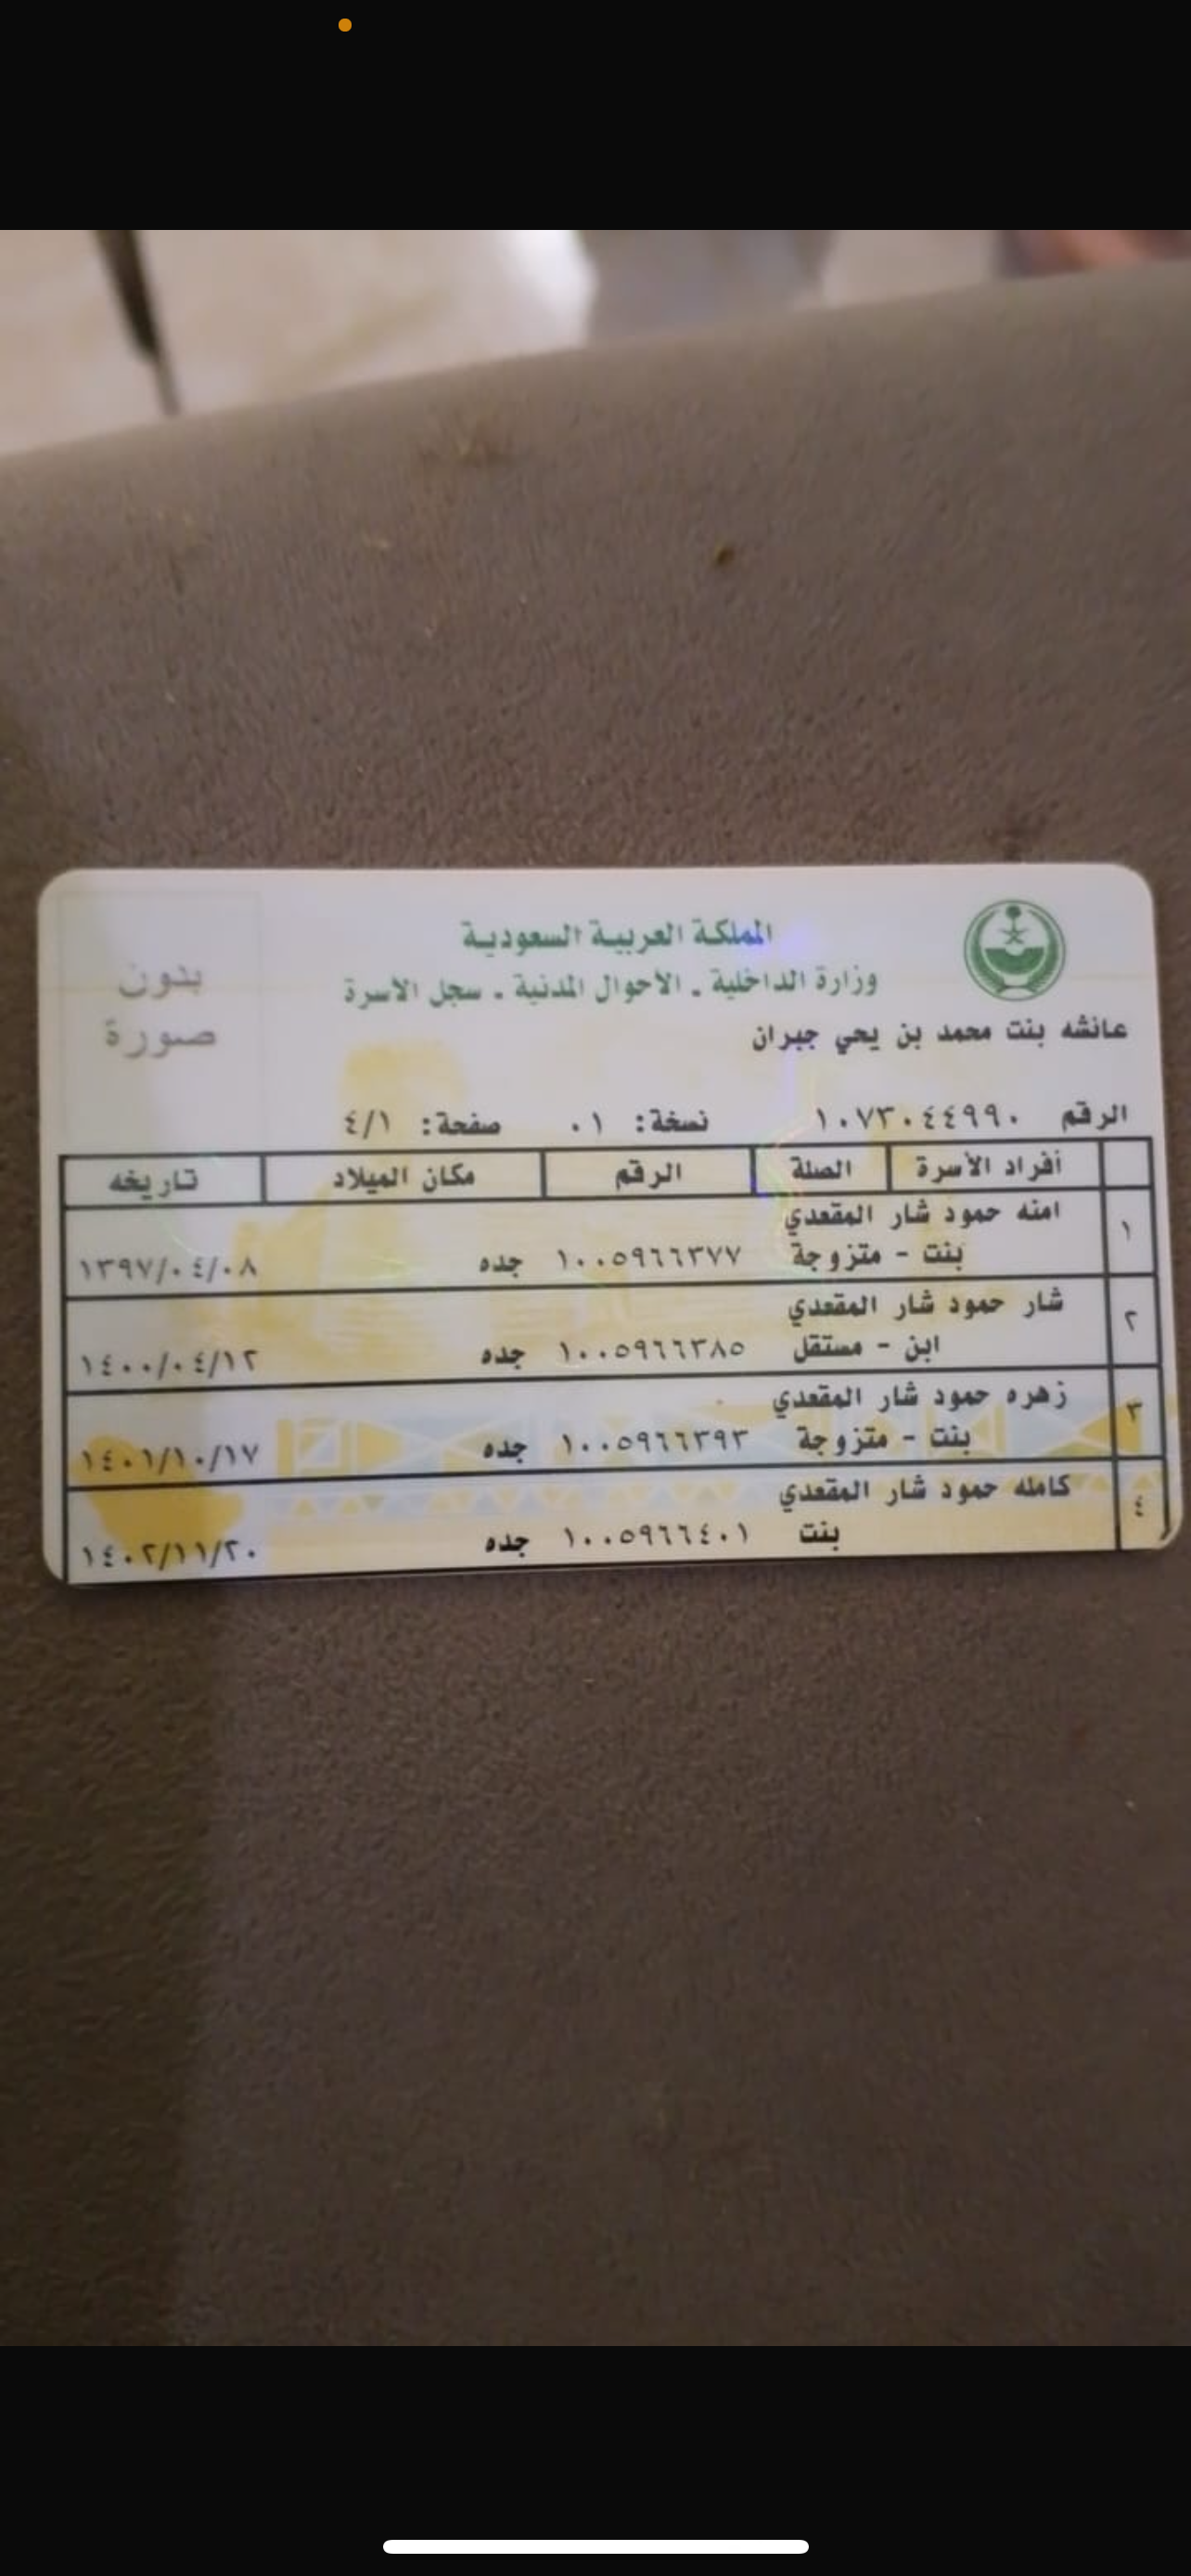 المملكة العربية السعودية
وزارة الداخلية - الأحوال المدنية - سجل الأسرة
بدون
صورة
عائشه بنت محمد بن يحي جبران
الرقم ١٠٧٣٠٤٤٩٩٠ نسخة: ٠١ صفحة: ٤/١
أفراد الأسرة الصلة الرقم مكان الميلاد تاريخه
١ امنه حمود شار المقعدي
بنت - متزوجة ١٠٠٥٩٦٦٣٧٧ جده ١٣٩٧/٠٤/٠٨
٢ شار حمود شار المقعدي
ابن - مستقل ١٠٠٥٩٦٦٣٨٥ جده ١٤٠٠/٠٤/١٢
٣ زهره حمود شار المقعدي
بنت - متزوجة ١٠٠٥٩٦٦٣٩٣ جده ١٤٠١/١٠/١٧
٤ كامله حمود شار المقعدي
بنت ١٠٠٥٩٦٦٤٠١ جده ١٤٠٢/١١/٢٠